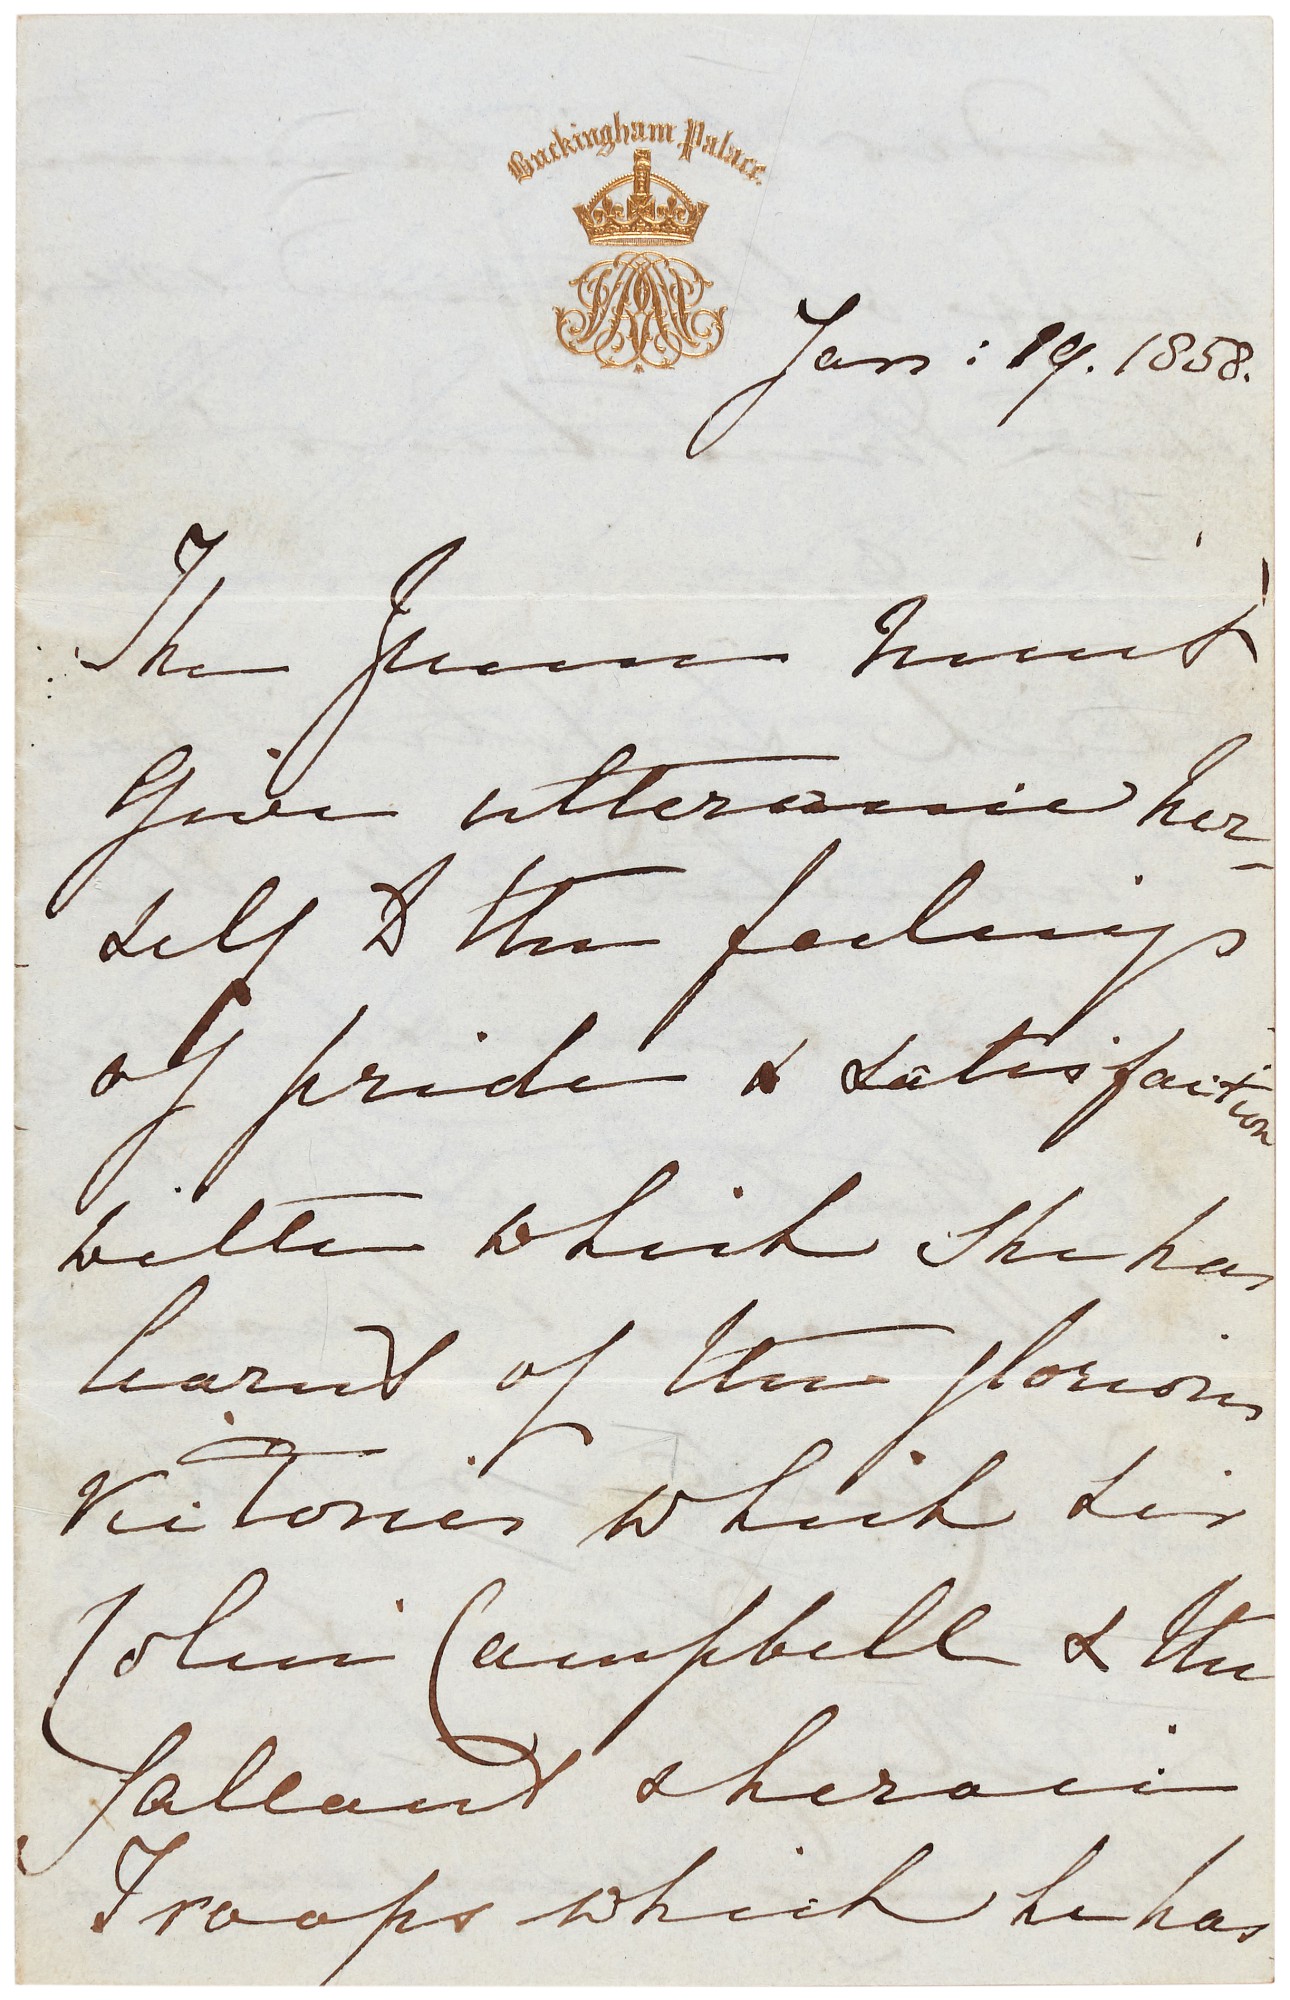 Buckingham Palace.
Jan: 19. 1858.
The Queen must
give utterance her-
self to the feelings
of pride & satisfaction
with which She has
learnt of the glorious
victories which Sir
Colin Campbell & the
gallant & heroic
Troops which he has